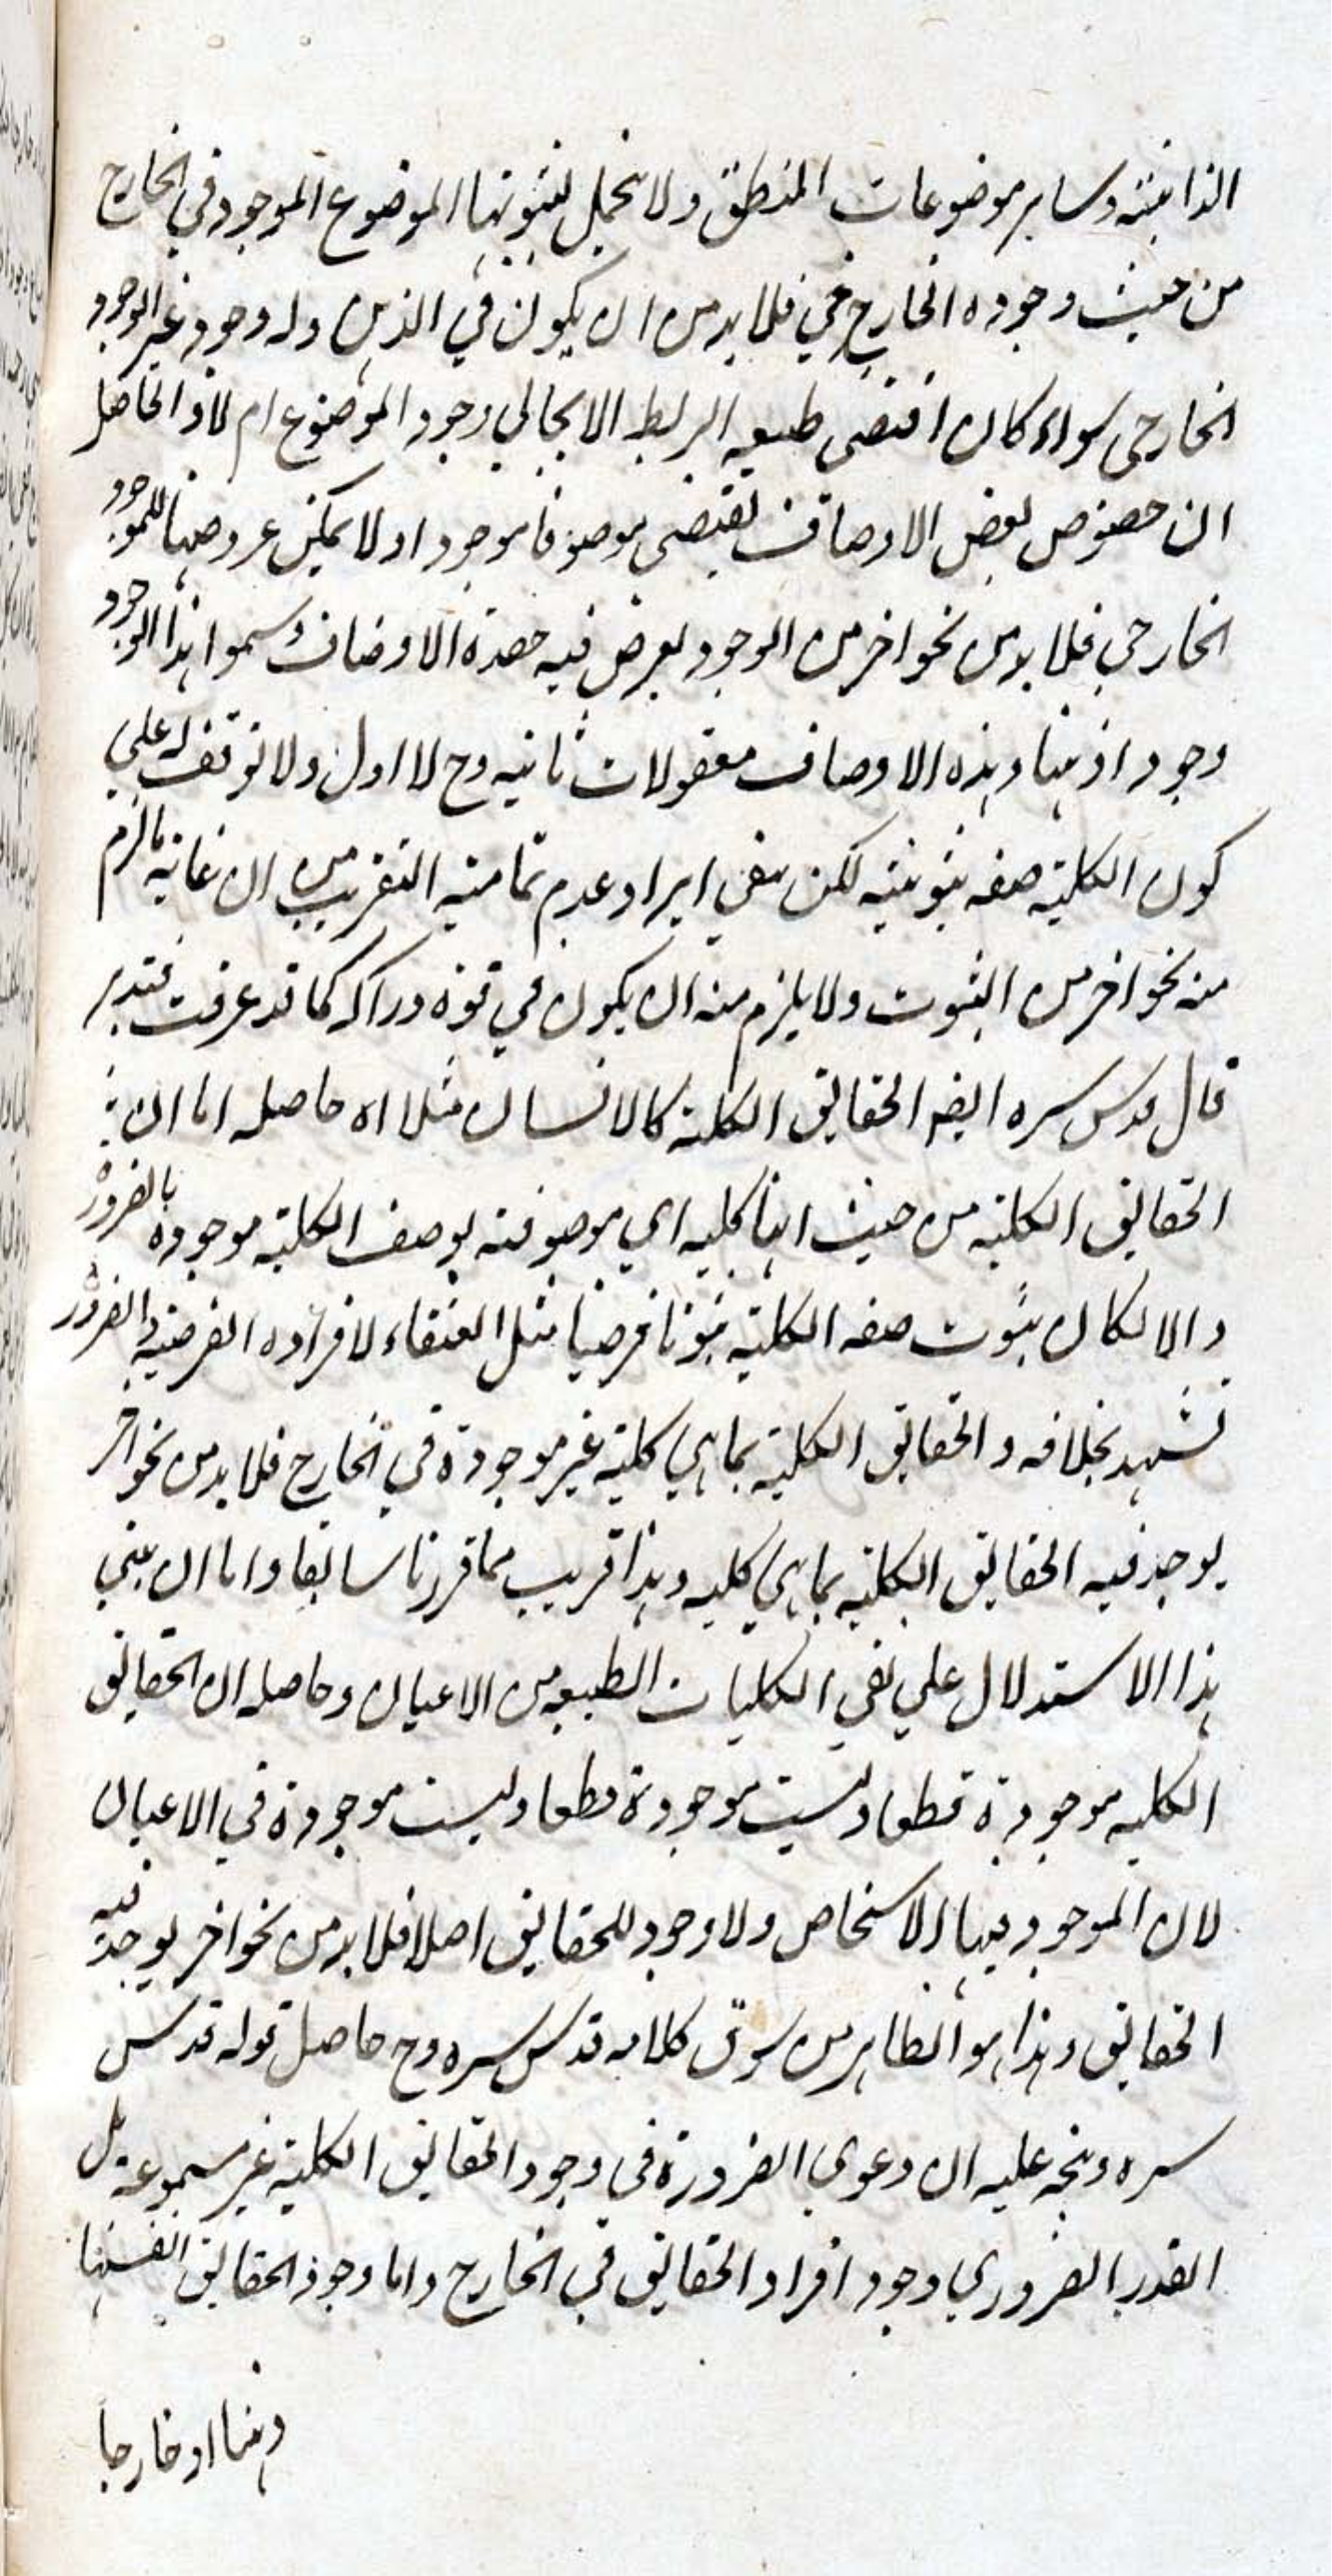 الذاتية وساير موضوعات المنطق ولا يحمل لثبوتها الموضوع الموجود في الخارج
من حيث وجوده الخارجي فلا بد من ان يكون في الذهن وله وجود غير الوجود
الخارجي سواء كان اقتضى طبيعه الربط الايجابي وجود الموضوع ام لا والحاصل
ان خصوص بعض الاوصاف يقتضي موصوفا موجودا ولا يمكن عروضها للموجود
الخارجي فلا بد من نحو اخر من الوجود يعرض فيه هذه الاوصاف وسموا هذا الوجود
وجودا ذهنيا وهذه الاوصاف معقولات ثانيه وح لا اول ولا توقف له على
كون الكلية صفه ثبوتية لكن بقي ايراد عدم تمامية التقريب من ان غاية ما لزم
منه نحو اخر من الثبوت ولا يلزم منه ان يكون في قوة دراكه كما قد عرفت فتدبر
قال قدس سره ايضا الحقايق الكلية كالانسان مثلا اه حاصله اما ان
الحقايق الكلية من حيث انها كليه اي موصوفة بوصف الكلية موجودة بالضرورة
والا لكان ثبوت صفه الكلية ثبوتا فرضيا مثل العنقاء لافراده الفرضية والضرورة
تشهد بخلافه والحقايق الكلية بما هي كلية غير موجودة في الخارج فلا بد من نحو اخر
يوجد فيه الحقايق الكلية بما هي كليه وهذا قريب مما قررنا سابقا واما ان يبنى
هذا الاستدلال علي نفي الكليات الطبيعيه من الاعيان وحاصله ان الحقايق
الكليه موجودة قطعا وليست موجودة قطعا وليست موجودة في الاعيان
لان الموجود فيها الاشخاص ولا وجود للحقايق اصلا فلا بد من نحو اخر يوجد فيه
الحقايق وهذا هو الظاهر من سوق كلامه قدس سره وح حاصل قوله قدس
سره ويتجه عليه ان دعوي الضرورة في وجود الحقايق الكلية غير مسموعة بل
القدر الضروري وجود افراد الحقايق في الخارج واما وجود الحقايق انفسها
ذهنا او خارجا